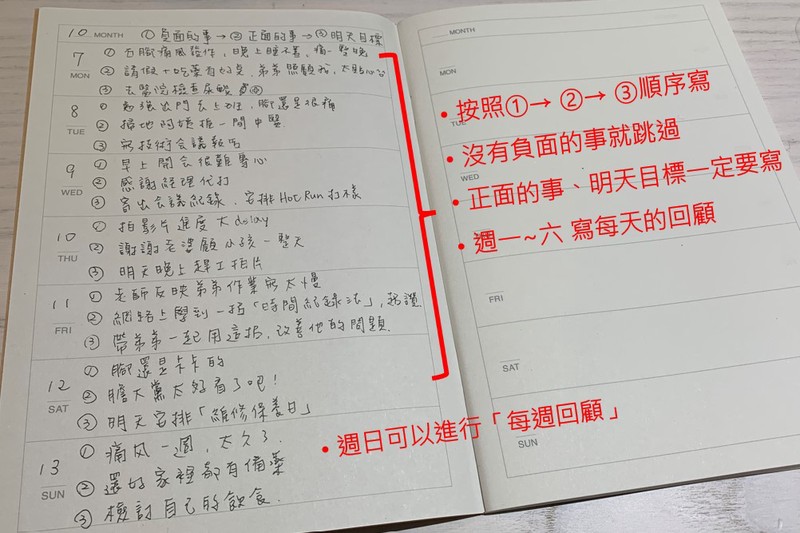 10 MONTH ①負面的事→②正面的事→③明天目標
7 MON ①右腳痛風發作，晚上睡不著，痛一整晚
②請假+吃藥有好點，弟弟照顧我，太貼心
③去醫院檢查尿酸
8 TUE ①勉強出門去上班，腳還是很痛
②掃地阿姨推一間中醫
③寫技術會議報告
9 WED ①早上開會很難專心
②感謝經理代打
③寄出會議紀錄，安排Hot Run打樣
10 THU ①拍影片進度大delay
②謝謝老婆顧小孩一整天
③明天晚上趕工拍片
11 FRI ①老師反映弟弟作業寫太慢
②網路上學到一招「時間紀錄法」，超讚
③帶弟弟一起用這招，改善他的問題
12 SAT ①腳還是卡卡的
②膽大黨太好看了吧！
③明天安排「維修保養日」
13 SUN ①痛风一週，太久了．
②還好家裡都有備藥
③檢討自己的飲食．
MONTH
MON
TUE
WED
FRI
SAT
SUN
•按照①→②→③順序寫
•沒有負面的事就跳過
•正面的事、明天目標一定要寫
•週一~六 寫每天的回顧
•週日可以進行「每週回顧」